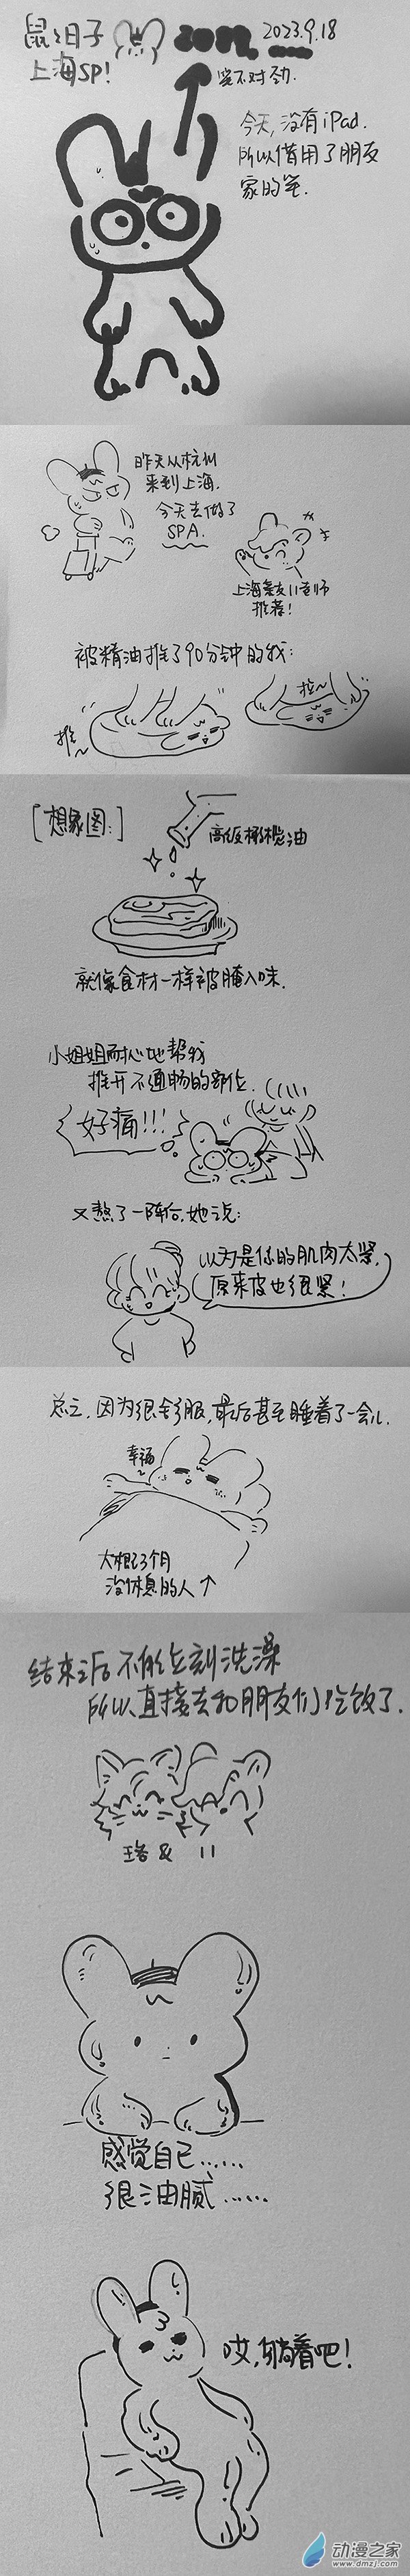 鼠鼠日子 2023.9.18
上海SP!
笔不对劲.
今天,没有iPad.
所以借用了朋友
家的笔.
昨天从杭州
来到上海.
今天去做了
SPA.
上海亲友川老师
推荐!
被精油推了90分钟的我:
推~
拉~
[想象图:]
高级橄榄油
就像食材一样被腌入味.
小姐姐耐心地帮我
推开不通畅的部位.
好痛!!!
又熬了一阵后,她说:
以为是你的肌肉太紧,
原来皮也很紧!
总之,因为很舒服,最后甚至睡着了一会儿.
幸福~
大概3个月
没休息的人↑
结束之后不能立刻洗澡
所以,直接去和朋友们吃饭了.
珞 & 川
感觉自己……
很油腻……
哎,躺着吧!
动漫之家
www.dmzj.com